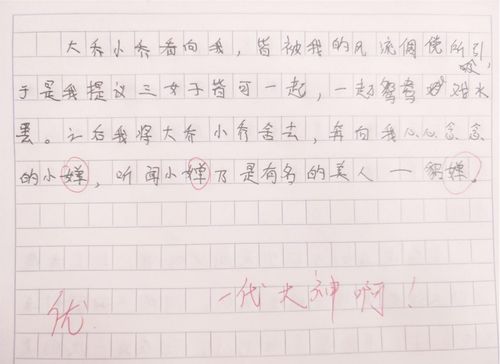 大乔小乔看向我，皆被我的风流倜傥所吸引，
于是我提议三女子皆可一起，一起鸳鸯戏水
罢。之后我将大乔小乔舍去，奔向我心心念念
的小婵，听闻小婵乃是有名的美人一貂婵。
优 一代大神啊！